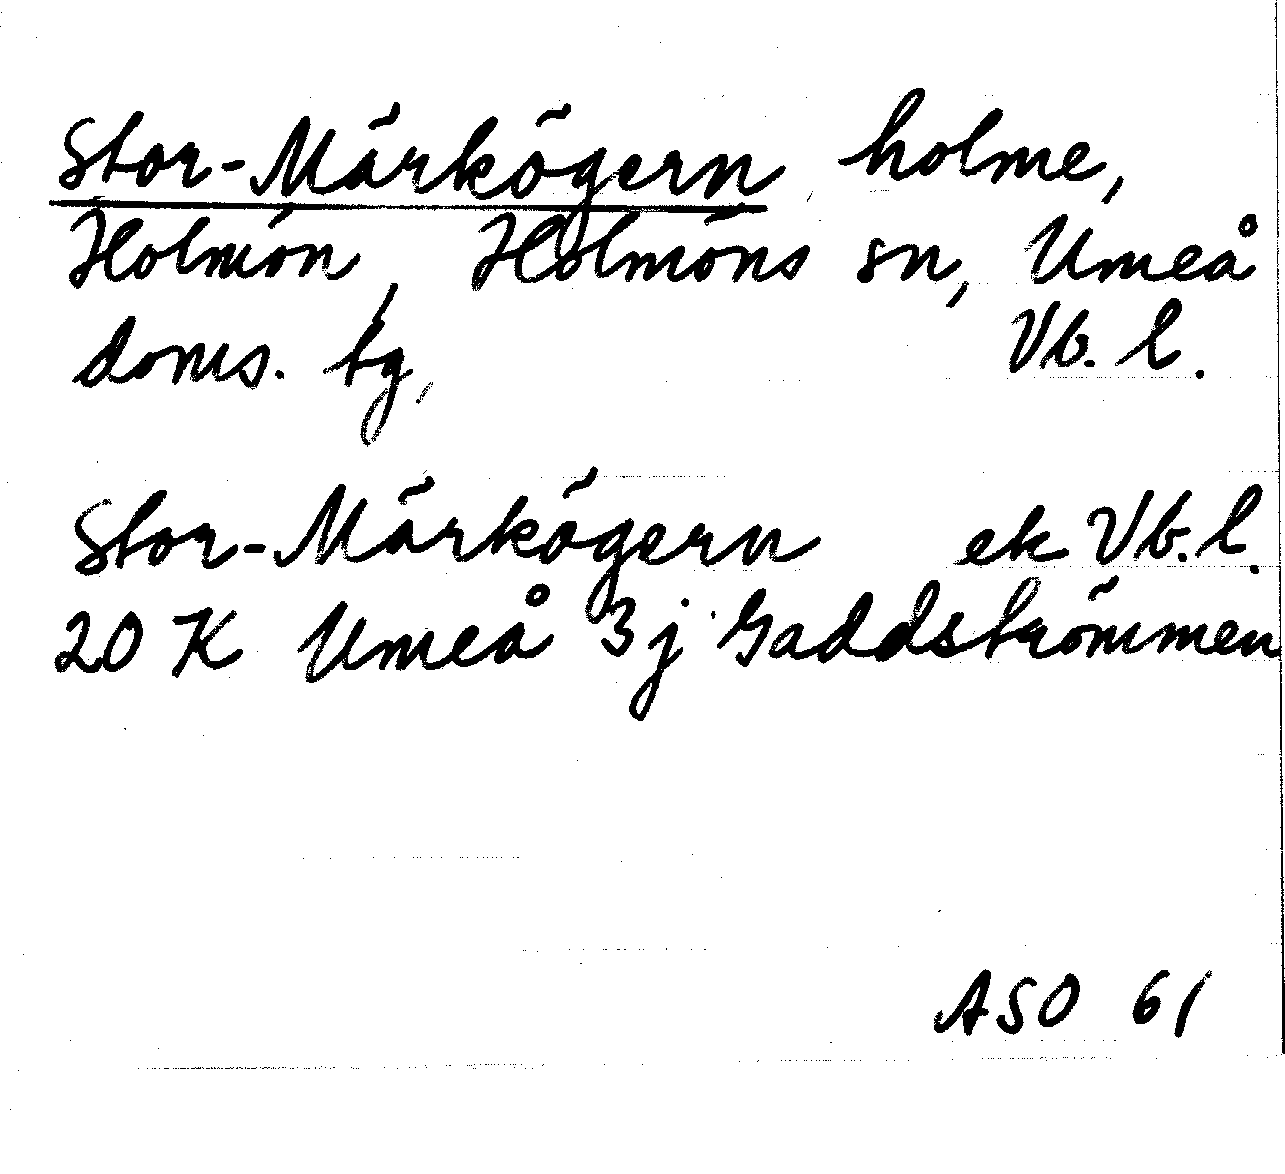 Stor-Märkögern holme,
Holmön, Holmöns sn, Umeå
doms. tg, Vb. l.
Stor-Märkögern ek Vb. l.
20 K Umeå 3 j Gaddströmmen
ASO 61